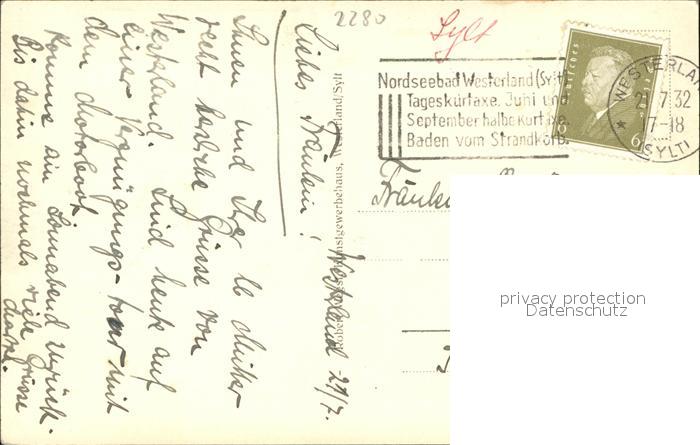 2280
Sylt
Nordseebad Westerland (Sylt)
Tageskurtaxe. Juni und
September halbe Kurtaxe.
Baden vom Strandkorb.
Deutsches Reich
6 6
WESTERLAND
7 32
7-18
(SYLT)
Fräulein
privacy protection
Datenschutz
Kunstgewerbehaus, Westerland/Sylt
Westerland - 29/7.
Liebes Fräulein!
Ihnen und Ihrer lb Mutter
recht herzliche Grüsse von
Westerland. Sind heute auf
einer Vergnügungs-tour mit
dem Motorboot.
Komme am Sonnabend zurück.
Bis dahin nochmals viele Grüsse